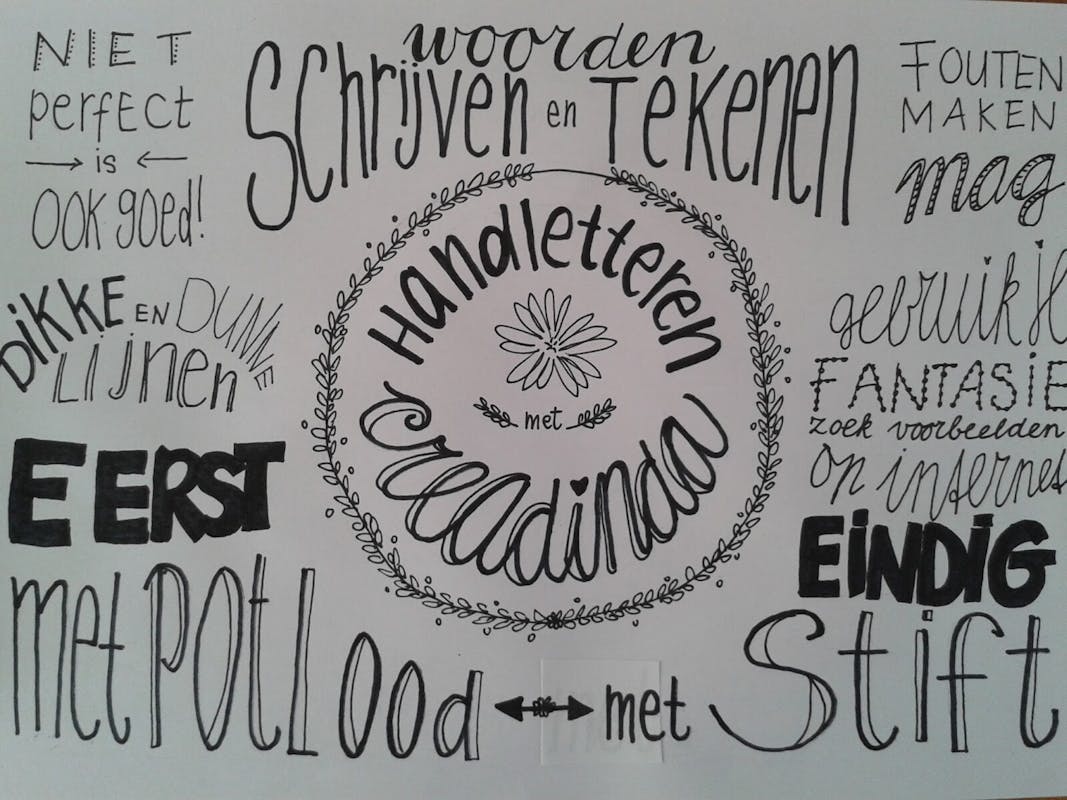 NIET
perfect
is
OOK goed!
woorden
Schrijven en Tekenen
FOUTEN
MAKEN
mag
DIKKE EN DUNNE
Lijnen
Handletteren
met
Creadinda
gebruik je
FANTASIE
zoek voorbeelden
op internet
EERST
met POTLOod
met
EINDIG
Stift